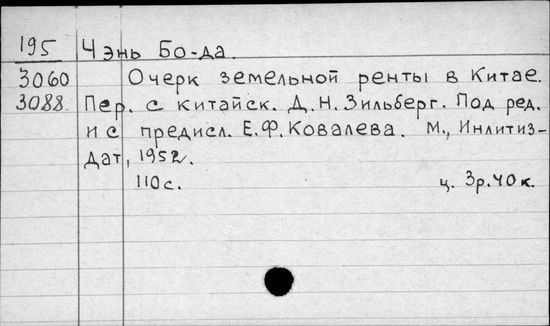 195 Чэнь Бо-да.
3060 Очерк земельной ренты в Китае.
3088. Пер. с китайск. Д.Н. Зильберг. Под ред.
и с предисл. Е.Ф. Ковалева. М., Инлитиз-
дат, 1952.
110 с. ц. 3р.40к.